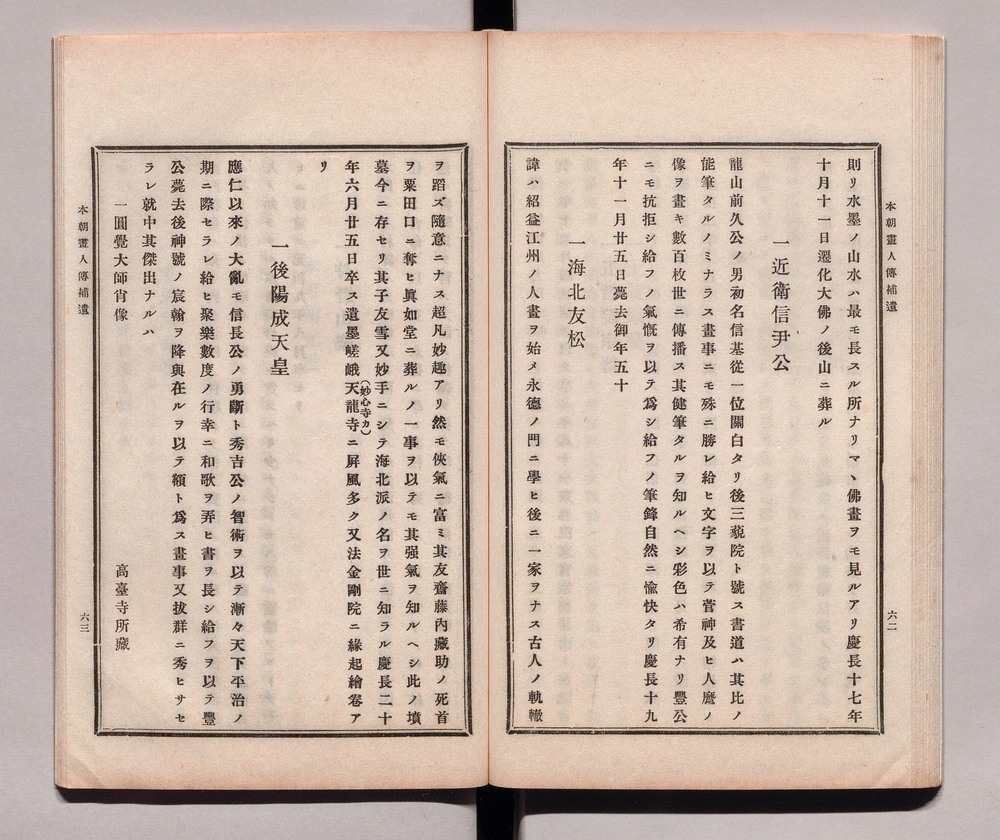 本朝畫人傳補遺
六二
則リ水墨ノ山水ハ最モ長スル所ナリマヽ佛畫ヲモ見ルアリ慶長十七年
十月十一日遷化大佛ノ後山ニ葬ル
一近衛信尹公
龍山前久公ノ男初名信基從一位關白タリ後三藐院ト號ス書道ハ其比ノ
能筆タルノミナラス畫事ニモ殊ニ勝レ給ヒ文字ヲ以テ菅神及ヒ人麿ノ
像ヲ畫キ數百枚世ニ傳播ス其健筆タルヲ知ルヘシ彩色ハ希有ナリ豐公
ニモ抗拒シ給フノ氣慨ヲ以テ爲シ給フノ筆鋒自然ニ愉快タリ慶長十九
年十一月廿五日薨去御年五十
一海北友松
諱ハ紹益江州ノ人畫ヲ始メ永德ノ門ニ學ヒ後ニ一家ヲナス古人ノ軌轍
ヲ蹈ズ隨意ニナス超凡妙趣アリ然モ俠氣ニ富ミ其友齋藤內藏助ノ死首
ヲ粟田口ニ奪ヒ眞如堂ニ葬ルノ一事ヲ以テモ其强氣ヲ知ルヘシ此ノ墳
墓今ニ存セリ其子友雪又妙手ニシテ海北派ノ名ヲ世ニ知ラル慶長二十
年六月廿五日卒ス遺墨嵯峨天龍寺(妙心寺カ)ニ屏風多ク又法金剛院ニ緣起繪卷ア
リ
一後陽成天皇
應仁以來ノ大亂モ信長公ノ勇斷ト秀吉公ノ智術ヲ以テ漸々天下平治ノ
期ニ際セラレ給ヒ聚樂數度ノ行幸ニ和歌ヲ弄ヒ書ヲ長シ給フヲ以テ豐
公薨去後神號ノ宸翰ヲ降與在ルヲ以テ額ト爲ス畫事又拔群ニ秀ヒサセ
ラレ就中其傑出ナルハ
一圓覺大師肖像 高臺寺所藏
本朝畫人傳補遺
六三